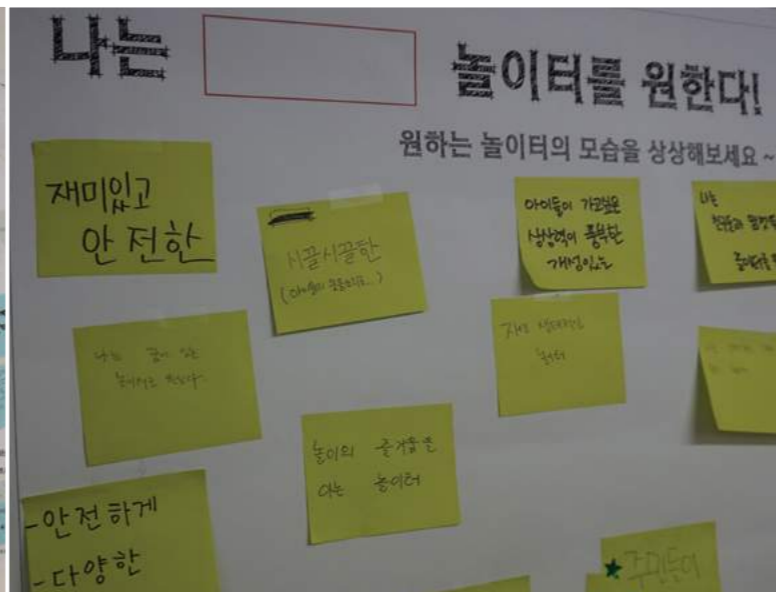 나는 놀이터를 원한다!
원하는 놀이터의 모습을 상상해보세요 ~
재미있고
안전한
시끌시끌한
아이들이 가고싶은
상상력이 풍부한
개성있는
나는
나는 꿈이 있는
놀이터를 원한다.
놀이터
놀이의 즐거움을
아는 놀이터
-안전하게
-다양한
★주민들이